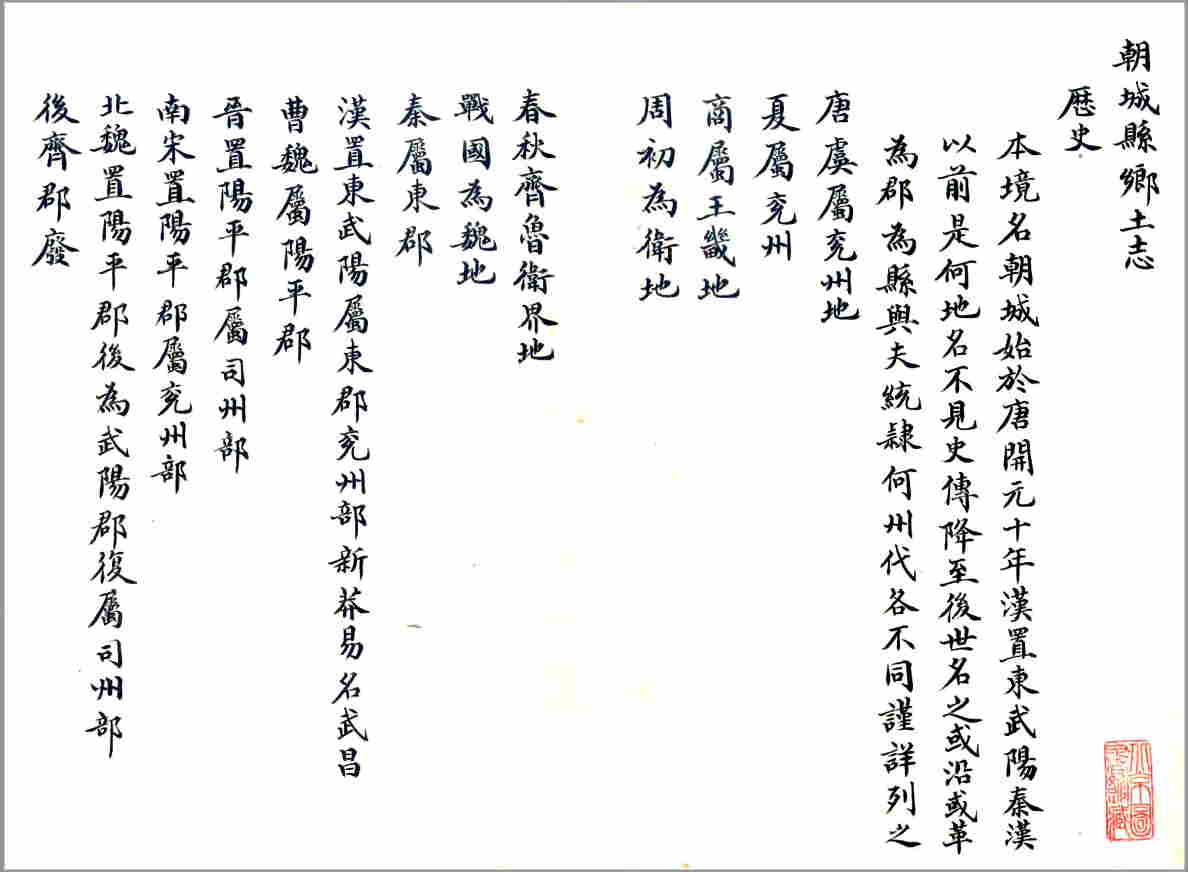 朝城縣鄉土志
歷史
本境名朝城始於唐開元十年漢置東武陽秦漢
以前是何地名不見史傳降至後世名之或沿或革
為郡為縣與夫統隸何州代各不同謹詳列之
唐虞屬兖州地
夏屬兖州
商屬王畿地
周初為衛地
春秋齊魯衛界地
戰國為魏地
秦屬東郡
漢置東武陽屬東郡兖州部新莽易名武昌
曹魏屬陽平郡
晉置陽平郡屬司州部
南宋置陽平郡屬兖州部
北魏置陽平郡後為武陽郡復屬司州部
後齊郡廢